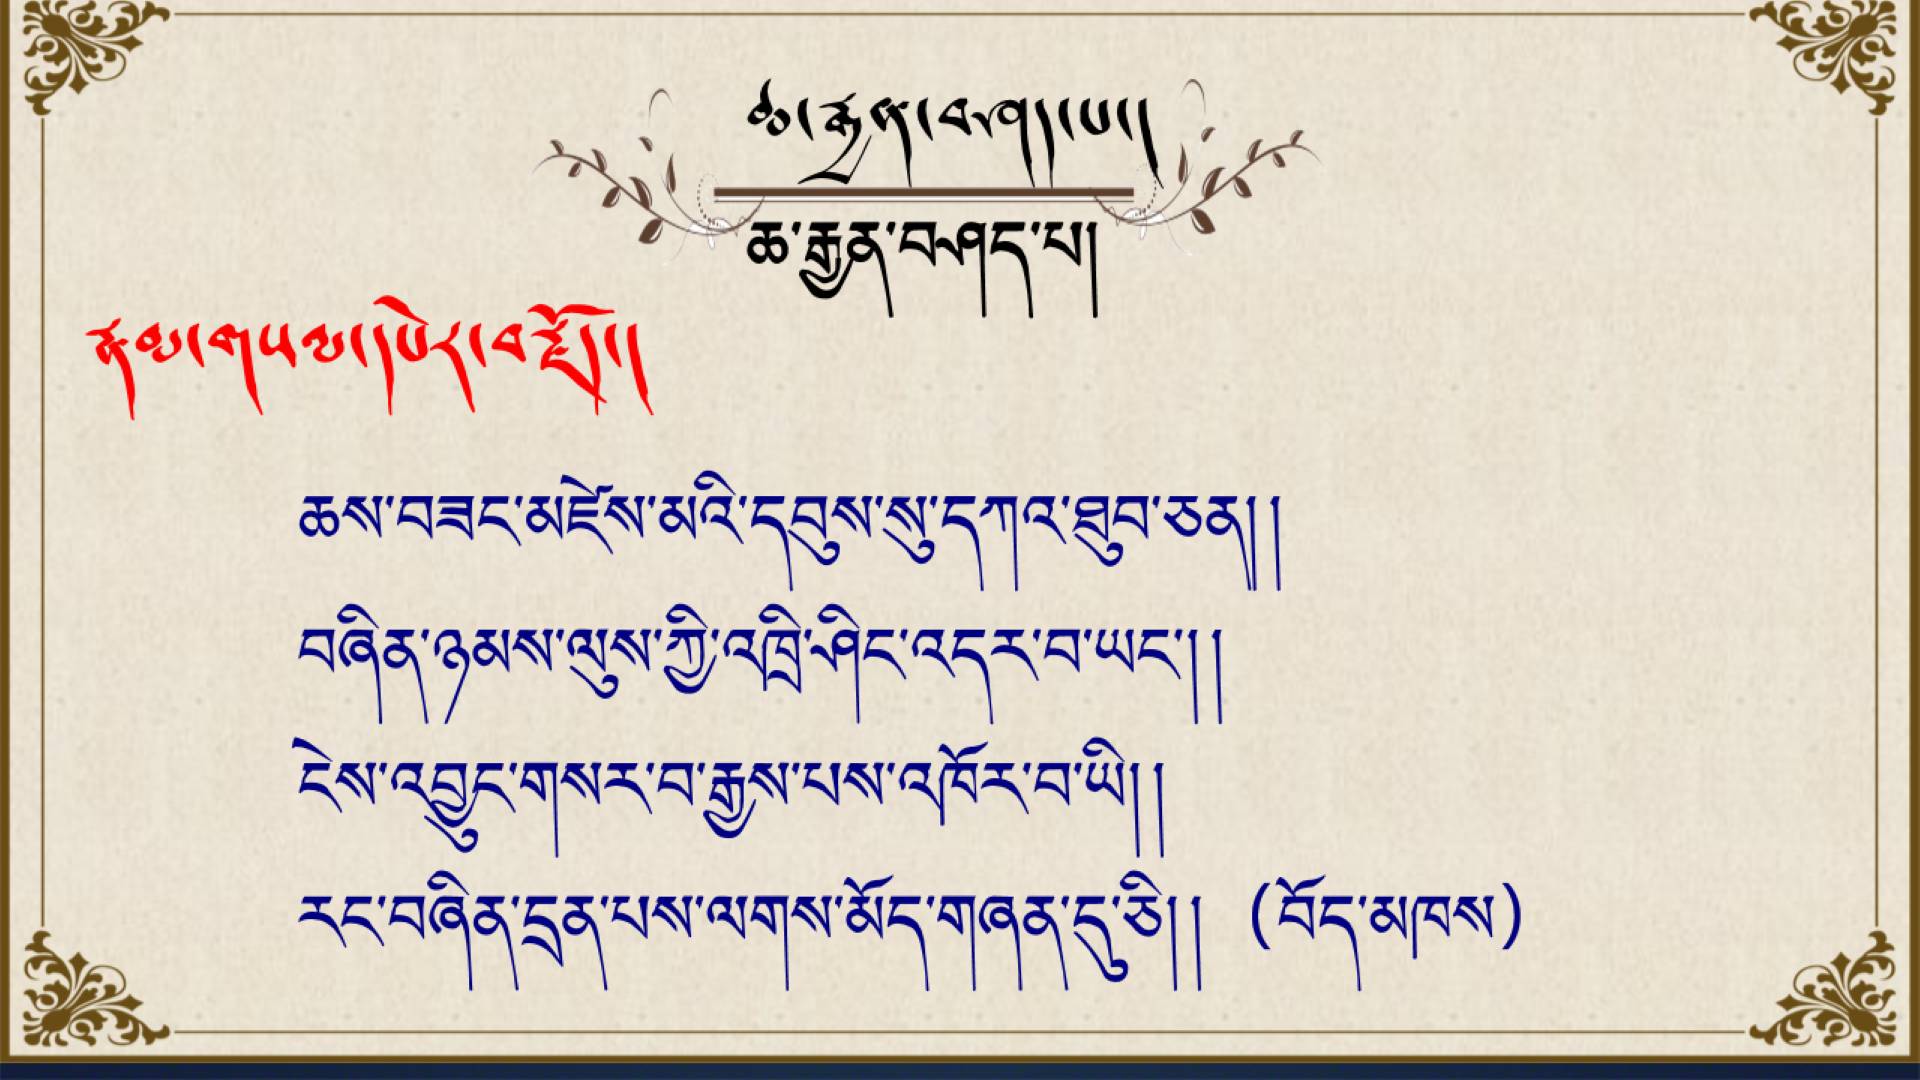 ཆ་རྒྱན་བཤད་པ།
ཆ་རྒྱན་བཤད་པ།
ཉམས་གཡས་།པེར་བརྗོད།
ཆས་བཟང་མཛེས་མའི་དབུས་སུ་དཀའ་ཐུབ་ཅན།།
བཞིན་ཉམས་ལུས་ཀྱི་འཁྲི་ཤིང་འདར་བ་ཡང་།།
ངེས་འབྱུང་གསར་བ་རྒྱས་པས་འཁོར་བ་ཡི།།
རང་བཞིན་དྲན་པས་ལགས་མོད་གཞན་དུ་ཅི།། (བོད་མཁས)